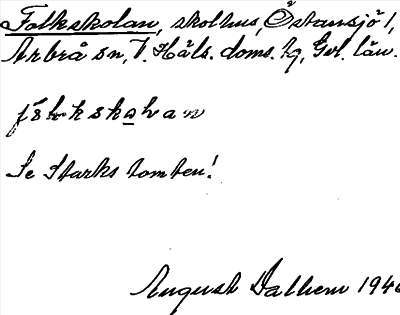 Folkskolan, skolhus, Östansjö 1,
Arbrå sn, V. Häls. doms. hg, Gvl. län.
Se Starks tomten!
August Dalhem 1946